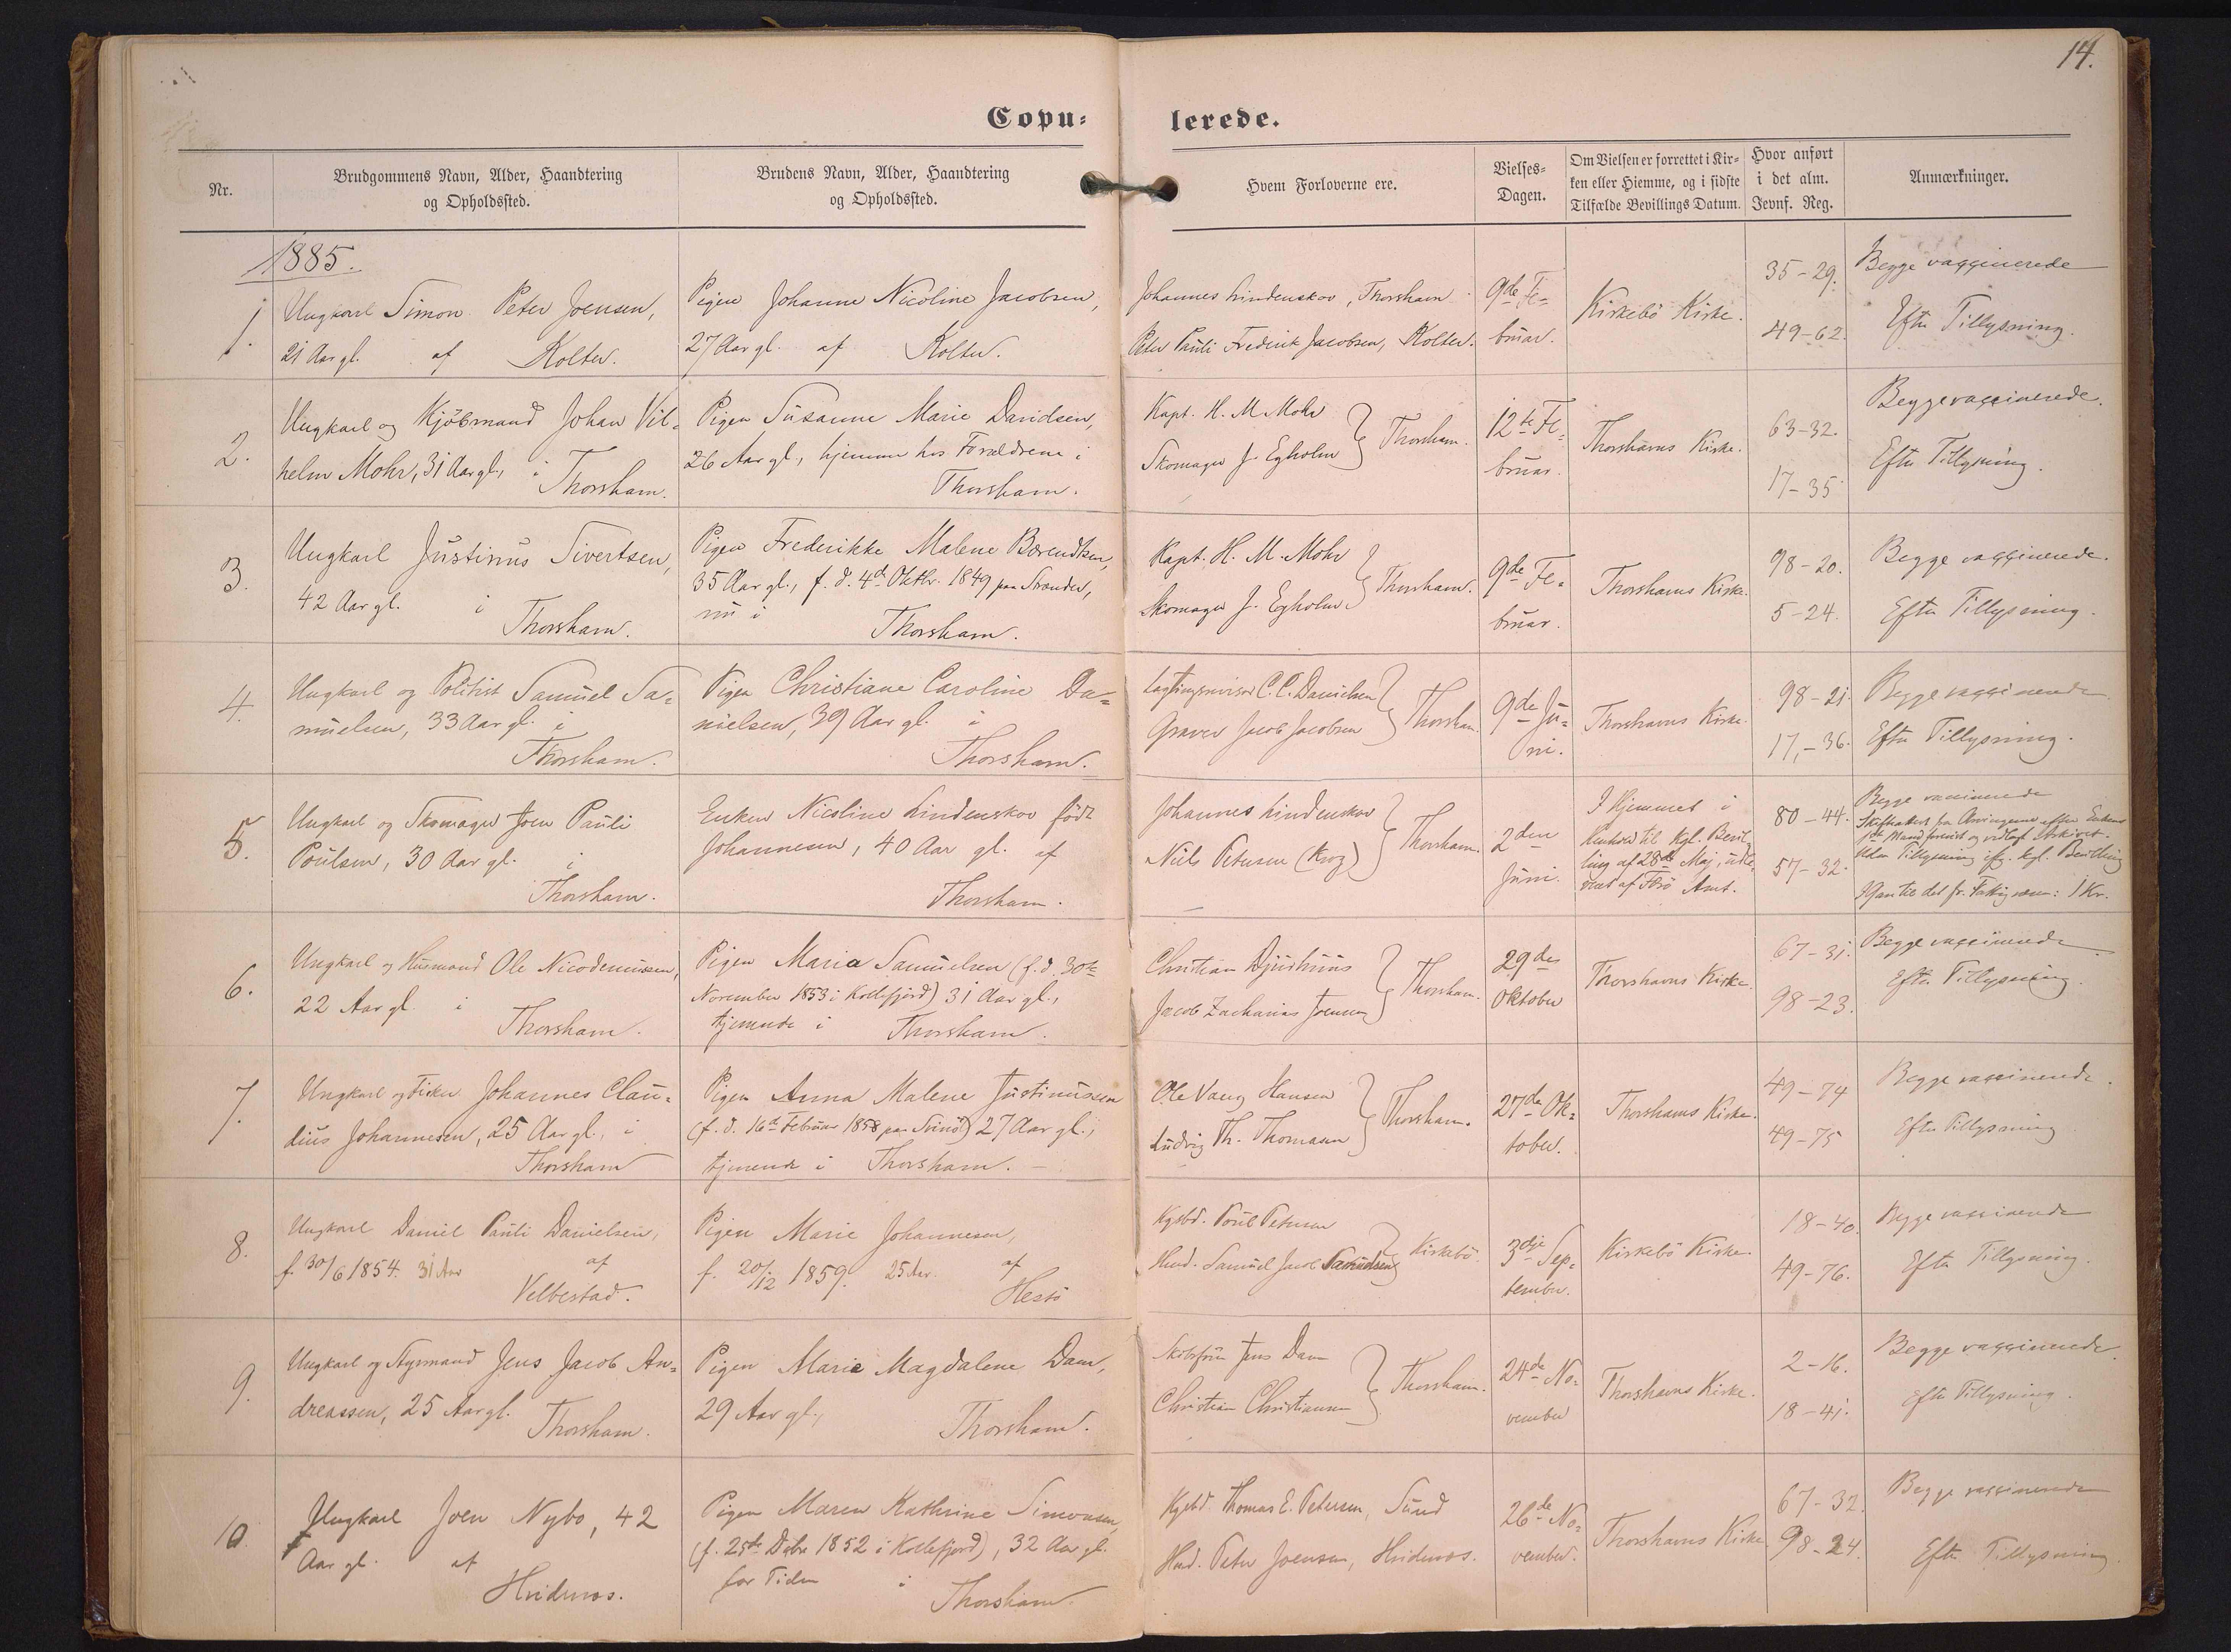 14.
Copu-
lerede.
Nr.
Brudgommens Navn, Alder, Haandtering
og Opholdssted.
Brudens Navn, Alder, Haandtering
og Opholdssted.
Hvem Forloverne ere.
Vielses-
Dagen.
Om Vielsen er forrettet i Kir-
ken eller Hiemme, og i sidste
Tilfælde Bevillings Datum.
Hvor anført
i det alm.
Jevnf. Reg.
Anmærkninger.
1885.
1.
Ungkarl Simon Peter Joensen,
21 Aar gl. af Kolter.
Pigen Johanne Nicoline Jacobsen,
27 Aar gl. af Kolter.
Johannes Lindenskov, Thorshavn
Peter Pauli Frederik Jacobsen, Kolter.
9de Fe-
bruar.
Kirkebö Kirke.
35-29.
49-62.
Begge vaccinerede
Efter Tillysning.
2.
Ungkarl og Kjöbmand Johan Vil-
helm Mohr, 31 Aar gl., i
Thorshavn.
Pigen Susanne Marie Davidsen,
26 Aar gl., hjemme hos Forældrene i
Thorshavn.
Kapt. H. M. Mohr
Skomager J. Egholm
Thorshavn.
12te Fe-
bruar.
Thorshavns Kirke.
63-32.
17-35
Begge vaccinerede.
Efter Tillysning.
3.
Ungkarl Justinus Sivertsen,
42 Aar gl. i
Thorshavn.
Pigen Frederikke Malene Berendtsen,
35 Aar gl., f. d. 4de Oktbr. 1849 paa Strander,
nu i
Thorshavn.
Kapt. H. M. Mohr
Skomager J. Egholm
Thorshavn.
9de Fe-
bruar.
Thorshavns Kirke.
98-20.
5-24.
Begge vaccinerede.
Efter Tillysning.
4.
Ungkarl og Politist Samuel Sa-
muelsen, 33 Aar gl. i
Thorshavn.
Pigen Christiane Caroline Da-
nielsen, 39 Aar gl. i
Thorshavn.
Lagtingsrevisor C. C. Danielsen
Graver Jacob Jacobsen
Thorshavn.
9de Ju-
ni.
Thorshavns Kirke.
98-21.
17-36.
Begge vaccinerede.
Efter Tillysning.
5.
Ungkarl og Skomager Joen Pauli
Poulsen, 30 Aar gl. i
Thorshavn.
Enken Nicoline Lindenskov født
Johannesen, 40 Aar gl. af
Thorshavn.
Johannes Lindenskov
Niels Petersen (Krog)
Thorshavn.
2den
Juni.
I Hjemmet i
Henhold til Kgl. Bevil-
ling af 28de Maj, udste-
det af Færö Amt.
80-44.
57-32.
Begge vaccinerede
Skifteattest fra Arvingerne efter Enkens
1ste Mand forevist og vedlagt Arkivet.
Uden Tillysning ifg. kgl. Bevilling
1 Kr.
6.
Ungkarl og Husmand Ole Nicodemussen,
22 Aar gl. i
Thorshavn.
Pigen Maria Samuelsen (f. d. 30te
November 1853 i Kollefjord) 31 Aar gl.,
tjenende i Thorshavn.
Christian Djurhuus
Jacob Zacharias Joensen
Thorshavn.
29de
Oktober
Thorshavns Kirke.
67-31.
98-23.
Begge vaccinerede
Efter Tillysning.
7.
Ungkarl og Fisker Johannes Clau-
dius Johannesen, 25 Aar gl., i
Thorshavn
Pigen Anna Malene Justinussen
(f. d. 16de Februar 1858 paa Svinö) 27 Aar gl.,
tjenende i Thorshavn.
Ole Vang Hansen
Ludvig Th. Thomasen
Thorshavn.
27de Ok-
tober.
Thorshavns Kirke.
49-74
49-75
Begge vaccinerede.
Efter Tillysning
8.
Ungkarl Daniel Pauli Danielsen,
f. 30/6 1854. 31 Aar af
Velbestad.
Pigen Marie Johannesen,
f. 20/12 1859. 25 Aar. af
Hestö
Kgsbd. Poul Petersen
Husd. Samuel Jacob Samuelsen
Kirkebö
3dje Sep-
tember.
Kirkebö Kirke.
18-40.
49-76.
Begge vaccinerede
Efter Tillysning.
9.
Ungkarl og Styrmand Jens Jacob An-
dreassen, 25 Aar gl.
Thorshavn.
Pigen Marie Magdalene Dam,
29 Aar gl.,
Thorshavn.
Skibsfører Jens Dam
Christian Christiansen
Thorshavn.
24de No-
vember
Thorshavns Kirke.
2-16.
18-41.
Begge vaccinerede.
Efter Tillysning.
10.
Ungkarl Joen Nybo, 42
Aar gl. af
Hvidenæs.
Pigen Maren Kathrine Simonsen
(f. 25de Dcbr 1852 i Kollefjord), 32 Aar gl.
for Tiden i
Thorshavn.
Kgsbd. Thomas E. Petersen, Sund
Husd. Peter Joensen, Hvidenæs.
26de No-
vember.
Thorshavns Kirke
67-32.
98-24.
Begge vaccinerede
Efter Tillysning.